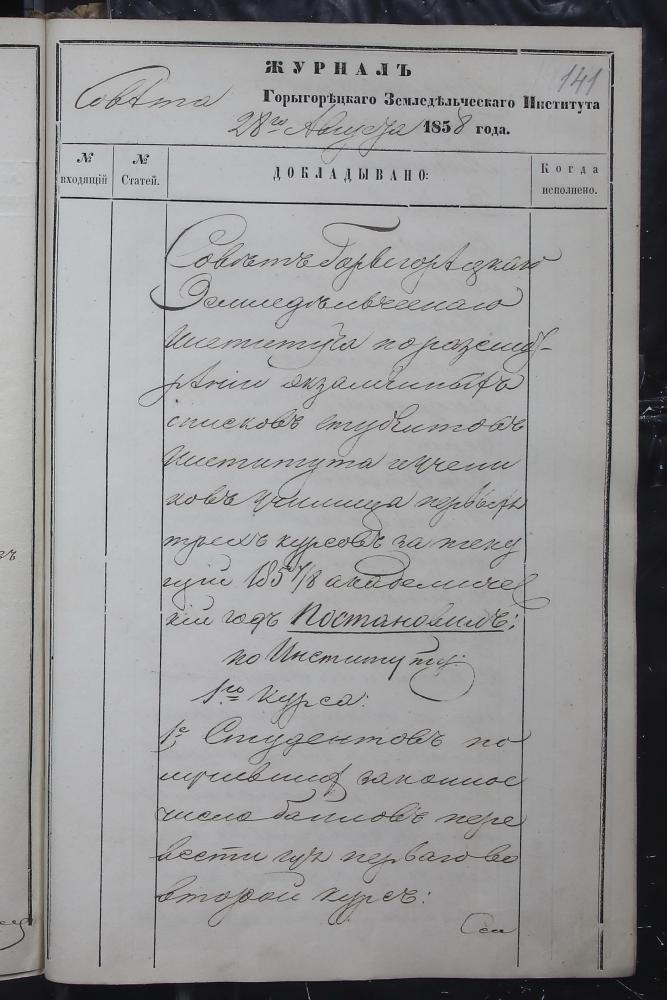 141
ЖУРНАЛЪ
Совѣта Горыгорѣцкаго Земледѣльческаго Института
28го Августа 1858 года.
№ входящій
№ Статей.
ДОКЛАДЫВАНО:
Когда исполнено.
Совѣтъ Горыгорѣцкаго
Земледѣльческаго
Института по разсмот-
рѣніи экзаменныхъ
списковъ студентовъ
Института и учени
ковъ училища первыхъ
трехъ курсовъ за теку
щій 1857/8 академичес
кій годъ Постановилъ:
по Институту:
1го курса:
1е Студентовъ по
лучившихъ законное
число балловъ пере
вести изъ перваго во
второй курсъ:
Сем